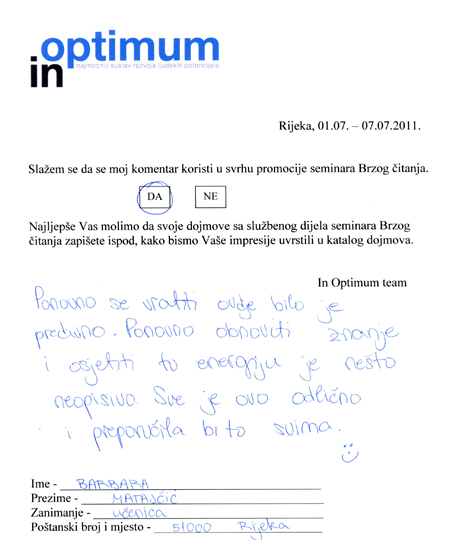 optimum
najmoćniji sustav razvoja ljudskih potencijala
in
Rijeka, 01.07. – 07.07.2011.
Slažem se da se moj komentar koristi u svrhu promocije seminara Brzog čitanja.
DA NE
Najljepše Vas molimo da svoje dojmove sa službenog dijela seminara Brzog
čitanja zapišete ispod, kako bismo Vaše impresije uvrstili u katalog dojmova.
In Optimum team
Ponovno se vratiti ovdje bilo je
predivno. Ponovno obnoviti znanje
i osjetiti tu energiju je nešto
neopisivo Sve je ovo odlično
i preporučila bi to svima.
Ime - BARBARA
Prezime - MATAJČIĆ
Zanimanje - učenica
Poštanski broj i mjesto - 51000 Rijeka